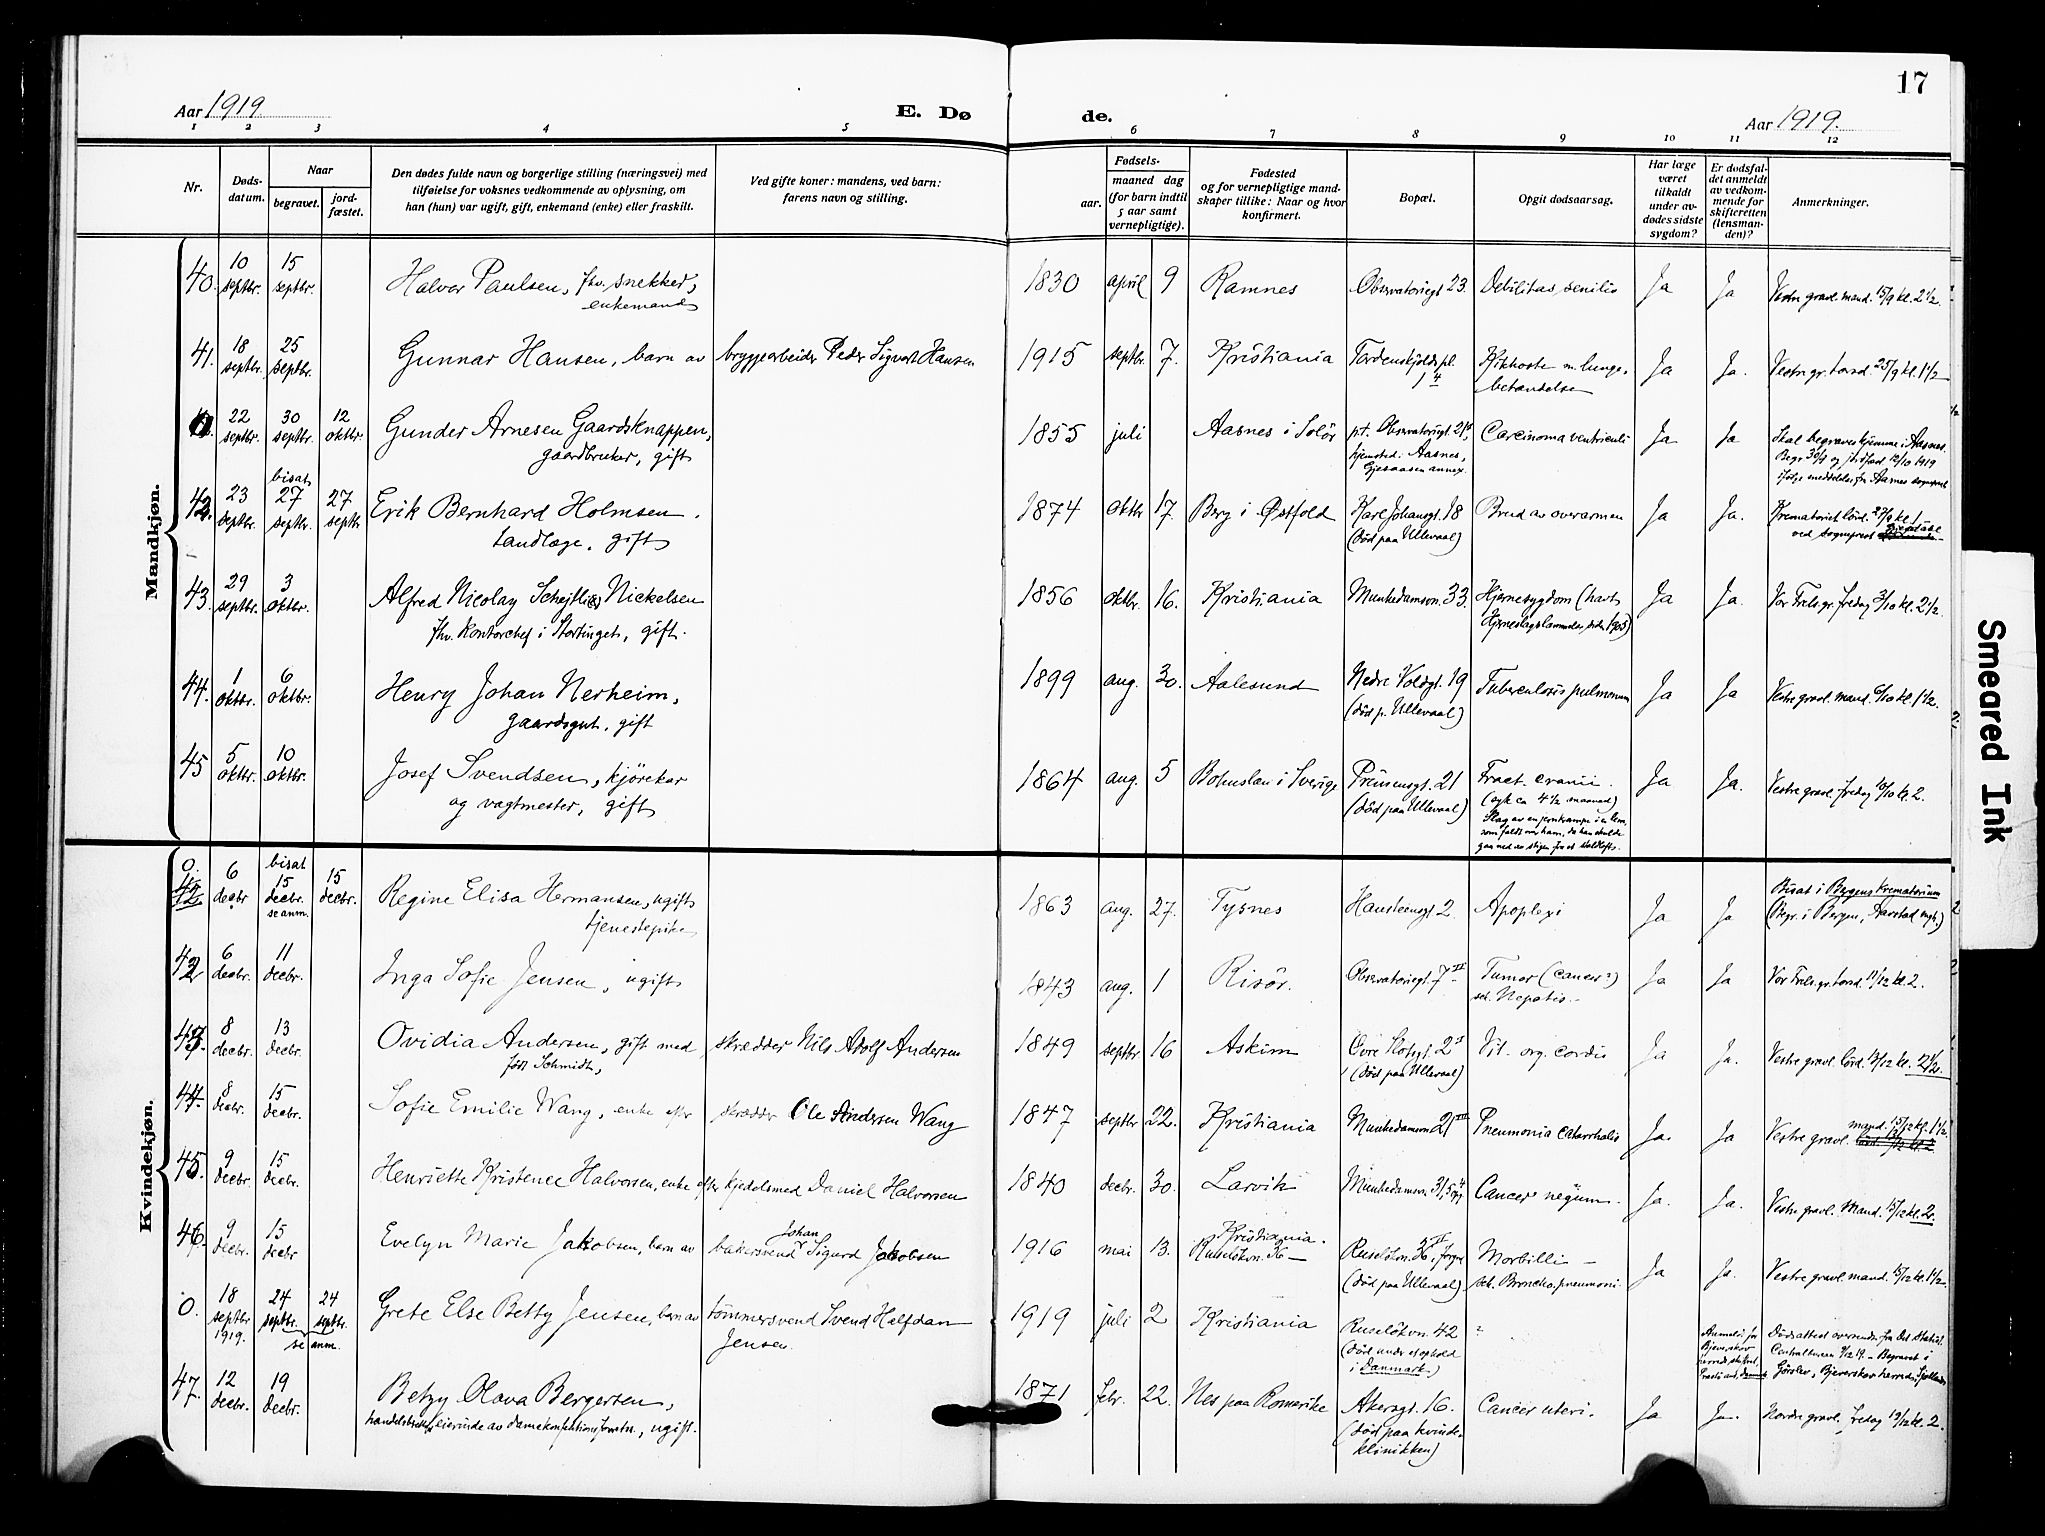 17
Aar 1919.
E. Dø
de.
Aar 1919.
1 2 3 4 5 6 7 8 9 10 11 12
Nr.
Døds-
datum.
Naar
begravet.
jord-
fæstet.
Den dødes fulde navn og borgerlige stilling (næringsvei) med
tilføielse for voksnes vedkommende av oplysning, om
han (hun) var ugift, gift, enkemand (enke) eller fraskilt.
Ved gifte koner: mandens, ved barn:
farens navn og stilling.
Fødsels-
aar.
maaned dag
(for barn indtil
5 aar samt
vernepligtige).
Fødested
og for vernepligtige mand-
skaper tillike: Naar og hvor
konfirmert.
Bopæl.
Opgit dødsaarsag.
Har læge
været
tilkaldt
under av-
dødes sidste
sygdom?
Er dødsfal-
det anmeldt
av vedkom-
mende for
skifteretten
(lensman-
den)?
Anmerkninger.
Mandkjøn.
40. 10 septbr. 15 septbr. Halvor Paulsen, fhv. snekker, enkemand 1830 april 9 Ramnes Observatoriegt 23. Debilitas senilis Ja Ja Vestre gravl. mand. 15/9 kl. 2 1/2.
41. 18 septbr. 25 septbr. Gunnar Hansen, barn av bryggearbeider Peder Sigvart Hansen 1915 septbr. 7. Kristiania Tordenskjolds pl. 1 4 Kikhoste m. lunge- betændelse Ja Ja. Vestre gr. torsd. 25/9 kl. 1 1/2
0. 22 septbr. 30 septbr. 12 oktbr. Gunder Arnesen Gaardsknappen, gaardbruker, gift 1855 juli Aasnes i Solør p.t. Observatoriegt. 21, hjemsted: Aasnes, Gjesaasen annex. Carcinoma ventriculi Ja Ja Skal begraves hjemme i Aasnes. Begr. 30/9 og jordfæst 12/10 1919 ifølge meddelelse fra Aasnes sogneprest
42. 23 septbr. bisat 27 septbr. 27 septbr Erik Bernhard Holmsen. tandlæge, gift 1874 oktbr 17. Berg i Østfold Karl Johansgt. 18 (død paa Ullevaal) Brud av overarmen Ja Ja. Krematoriet lørd. 27/9 kl. 1 ved sogneprest
43. 29 septbr. 3 oktbr. Alfred Nicolay Schejtlie Nickelsen fhv. kontorchef i Stortinget, gift. 1856 oktbr. 16. Kristiania Munkedamsvn. 33. Hjernesygdom (havt Hjerneslagslammelse siden 1905) Ja Ja. Vor Frels. gr. fredag 3/10 kl. 2 1/2.
44. 1 oktbr. 6 oktbr. Henry Johan Nerheim, gaardsgut, gift 1899 aug. 30. Aalesund Nedre Voldgt. 19 (død p. Ullevaal) Tuberculosis pulmonum Ja Ja Vestre gravl. mand. 6/10 kl. 1 1/2.
45 5 oktbr. 10 oktbr. Josef Svendsen, kjørekar og vagtmester, gift 1864 aug. 5 Bohuslen i Sverige Prinsensgt. 21 (død paa Ullevaal) Fract. cranii. (syk ca 4 1/2 maaned) Slag av en jernkrampe i en lem, som faldt over ham, da han skulde gaa ned av stigen fra et staldloft. Ja Ja. Vestre gravl. fredag 10/10 kl. 2.
Kvindekjøn.
0. 42. 6 decbr bisat 15 decbr. se anm. 15 decbr. Regine Elisa Hermansen, ugift tjenestepike 1863 aug. 27. Tysnes Hansteensgt 2. Apoplexi Ja Ja Bisat i Bergens krematorium (Begr. i Bergen, Aarstad mgh.)
42 6 decbr. 11 decbr. Inga Sofie Jensen, ugift 1843 aug. 1 Risør. Observatoriegt. 7 II Tumor (cancer?) sed. Hepatis. Ja Ja Vor Frels. gr. torsd. 11/12 kl. 2.
43. 8 decbr. 13 decbr. Ovidia Andersen, gift med født Schmidt, skrædder Nils Adolf Andersen 1849 septbr 16 Askim Øvre Slotsgt. 2 I (død paa Ullevaal) Vit. org. cordis Ja Ja. Vestre gravl. lørd. 13/12 kl. 12 1/2.
44. 8 decbr. 15 decbr. Sofie Emilie Wang, enke efter skrædder Ole Andersen Wang 1847 septbr 22. Kristiania Munkedamsvn 21 III Pneumonia catarrhalis Ja. Ja Vestre gravl. mand. 15/12 kl. 1 1/2.
45. 9 decbr. 15 decbr. Henriette Kristence Halvorsen, enke efter kjedelsmed Daniel Halvorsen 1840 decbr. 30. Larvik Munkedamsvn. 31, 5 opg. Cancer Ja. Ja. Vestre gravl. mand. 15/12 kl. 2.
46. 9 decbr. 15 decbr Evelyn Marie Jakobsen, barn av bakersvend Johan Sigurd Jakobsen 1916 mai 13. Kristiania. Ruseløkvn. 36 Ruseløkvn. 36, (død paa Ullevaal) Morbilli seb. Broncho, pneumoni. Ja Ja. Vestre gravl. mand. 15/12 kl. 1 1/2.
0. 18 septbr 1919. 24 septbr. 24 septbr. se anm. Grete Else Betty Jensen, barn av tømmersvend Svend Halfdan Jensen 1919 juli 2 Kristiania Ruseløkvn. 42 (død under et ophold i Danmark.) ? Anmeldt for Bjeverskov herreds Dødsattest oversendt fra Det statist. Centralbureau 9/12 19. - Begravet i Gørslev, Bjeverskov herred, Sjælland.
47. 12 decbr. 19 decbr. Betzy Olava Bergersen, handelsbetj., eierinde av damekonfektionsforretn., ugift. 1871 febr. 22. Nes paa Romerike Akersgt. 16. (død paa kvinde- klinikken) Cancer uteri. Ja Ja. Nordre gravl. fredag 19/12 kl. 2.
Smeared Ink